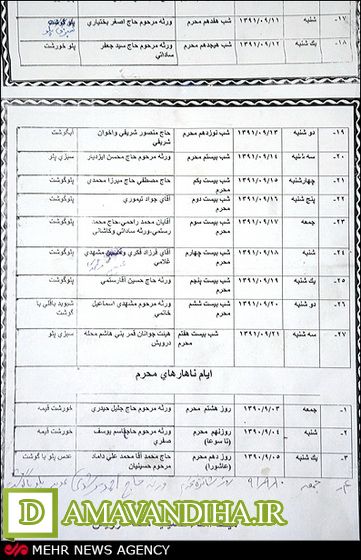 ۱۷- شنبه ۱۳۹۱/۰۹/۱۱ شب هفدهم محرم ورثه مرحوم حاج اصغر بختیاری سبزی پلو
۱۸- یک شنبه ۱۳۹۱/۰۹/۱۲ شب هیجدهم محرم ورثه مرحوم حاج سید جعفر
ساداتی پلو خورشت
۱۹- دو شنبه ۱۳۹۱/۰۹/۱۳ شب نوزدهم محرم حاج منصور شریفی واخوان
شریفی آبگوشت
۲۰- سه شنبه ۱۳۹۱/۰۹/۱۴ شب بیستم محرم ورثه مرحوم حاج محسن ایزدیار سبزی پلو
۲۱- چهارشنبه ۱۳۹۱/۰۹/۱۵ شب بیست یکم
محرم حاج مصطفی حاج میرزا محمدی پلوگوشت
۲۲- پنج شنبه ۱۳۹۱/۰۹/۱۶ شب بیست دوم
محرم آقای جواد تیموری پلوگوشت
۲۳- جمعه ۱۳۹۱/۰۹/۱۷ شب بیست سوم
محرم آقایان محمد راحمی،حاج محمد
رستمی،ورثه ساداتی وکاشانی پلوگوشت
۲۴- شنبه ۱۳۹۱/۰۹/۱۸ شب بیست چهارم
محرم آقای فرزاد فکری و مشهدی
غلامی پلوگوشت
۲۵- یک شنبه ۱۳۹۱/۰۹/۱۹ شب بیست پنجم
محرم ورثه حاج حسین آقارستمی پلوگوشت
۲۶- دو شنبه ۱۳۹۱/۰۹/۲۰ شب بیست ششم
محرم ورثه مرحوم مشهدی اسماعیل
خاتمی شوید باقلی با
گوشت
۲۷- سه شنبه ۱۳۹۱/۰۹/۲۱ شب بیست هفتم
محرم هیئت جوانان قمر بنی هاشم محله
درویش سبزی پلو
ایام ناهارهای محرم
۱- جمعه ۱۳۹۰/۰۹/۰۳ روز هشتم محرم ورثه مرحوم حاج جلیل حیدری خورشت قیمه
۲- شنبه ۱۳۹۰/۰۹/۰۴ روزنهم محرم
(تا سوعا) ورثه مرحوم حاج‌قاسم یوسف
صفری خورشت قیمه
۳- یک شنبه ۱۳۹۰/۰۹/۰۵ روز دهم محرم
(عاشورا) حاج محمد آقا محمد علی داماد
مرحوم حسینیان عدس پلو با گوشت
DAMAVANDIHA.IR
MEHR NEWS AGENCY